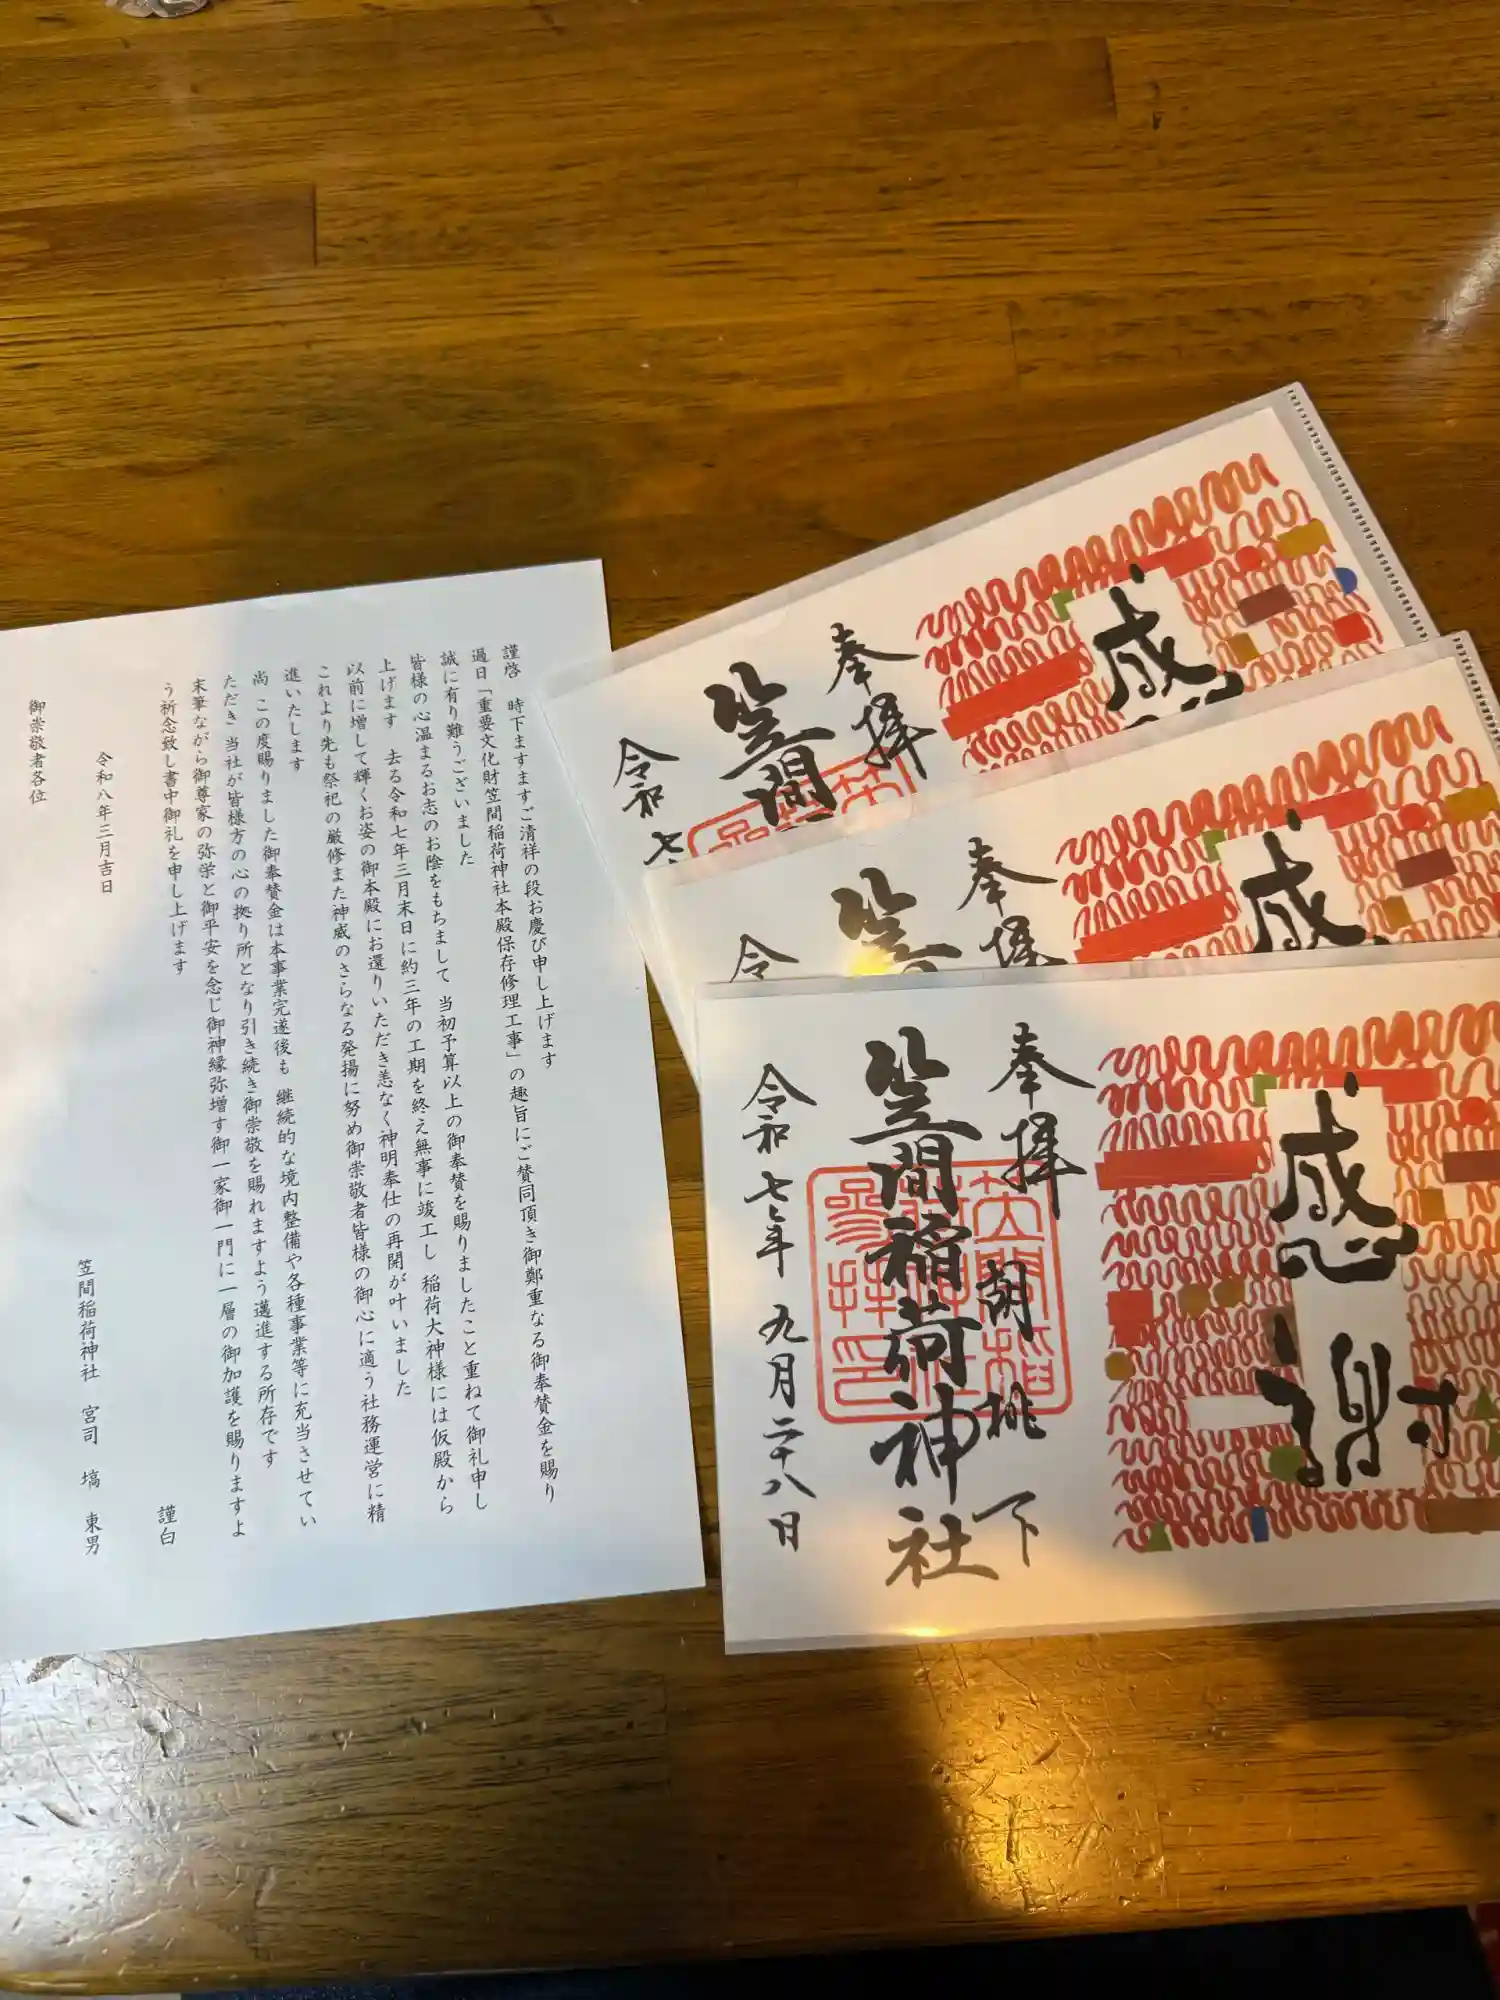 謹啓　時下ますますご清祥の段お慶び申し上げます
過日「重要文化財笠間稲荷神社本殿保存修理工事」の趣旨にご賛同頂き御鄭重なる御奉賛金を賜り
誠に有り難うございました
皆様の心温まるお志のお陰をもちまして　当初予算以上の御奉賛を賜りましたこと重ねて御礼申し
上げます　去る令和七年三月末日に約三年の工期を終え無事に竣工し　稲荷大神様には仮殿から
以前に増して輝くお姿の御本殿にお還りいただき恙なく神明奉仕の再開が叶いました
これより先も祭祀の厳修また神威のさらなる発揚に努め御崇敬者皆様の御心に適う社務運営に精
進いたします
尚　この度賜りました御奉賛金は本事業完遂後も　継続的な境内整備や各種事業等に充当させてい
ただき　当社が皆様方の心の拠り所となり引き続き御崇敬を賜れますよう邁進する所存です
末筆ながら御尊家の弥栄と御平安を念じ御神縁弥増す御一家御一門に一層の御加護を賜りますよ
う祈念致し書中御礼を申し上げます
謹白
令和八年三月吉日
笠間稲荷神社　宮司　塙　東男
御崇敬者各位
感
奉拝
笠間
令和七
感
奉拝
笠
令
感謝
奉拝　胡桃下
笠間稲荷神社
令和七年九月二十八日